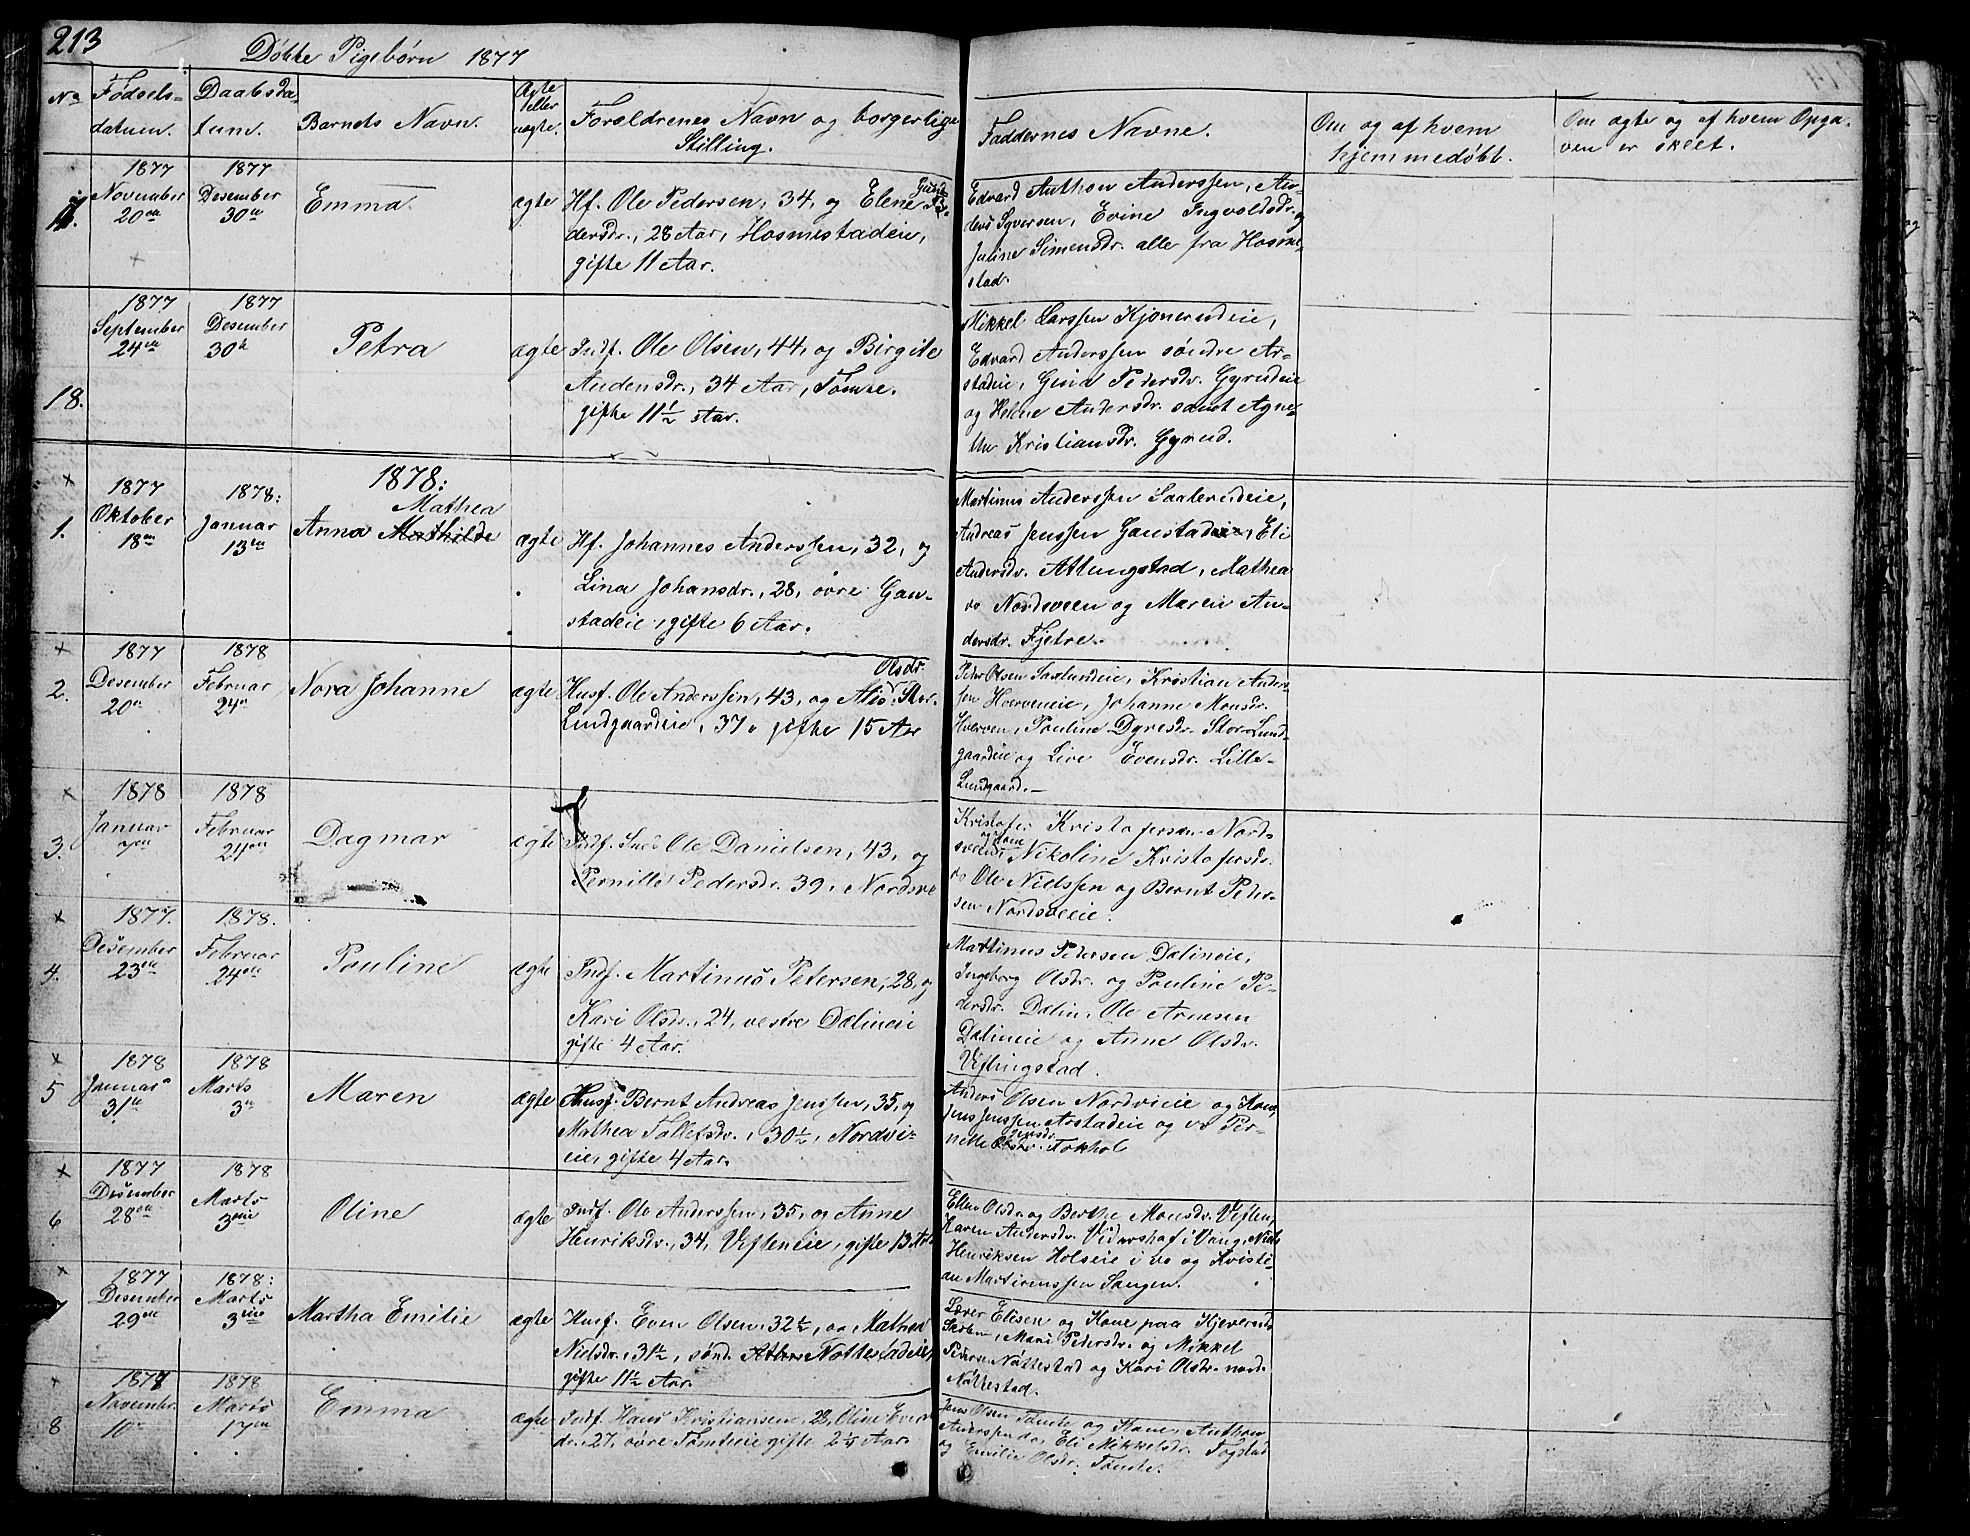 213
Døbte Pigebørn 1877
No
Fødsels-
datum.
Daabsda-
tum.
Barnets Navn.
Ægte
eller
uægte.
Forældrenes Navn og borgerlige
Stilling.
Faddernes Navne.
Om og af hvem
hjemmedøbt.
Om ægte og af hvem Opga-
ven er skeet.
1877
November
20
1877
Desember
30
Emma.
ægte
Hf. Ole Pedersen, 34, og Elene
dersdr., 28 Aar, Hosmestadeie,
gifte 11 Aar.
Edvard Anthon Anderssen, An-
ders Syversen, Evine Ingvoldsdr. og
Juline Simensdr. alle fra Hosme-
stad.
18.
1877
September
24
1877
Desember
30
Petra
ægte
Indf. Ole Olsen, 44, og Birgite
Audensdr., 34 Aar, Tømte.
gifte 11½ Aar.
Mikkel Larssen Kjonerudeie,
Edvard Anderssen søndre Ar-
stadeie, Gina Pedersdr. Gyrudeie
og Helene Andersdr. samt Agne-
the Kristiansdr. Gyrud.
1878:
1.
1877
Oktober
18
1878:
Januar
13
Mathea
Anna Mathilde
ægte
Hf. Johannes Anderssen, 32, og
Lina Johansdr., 28, øvre Gau-
stadeie, gifte 6 Aar.
Martinus Anderssen Saaterudeie,
Andreas Jenssen Gaustadeie, Eli
Andersdr. Attungstad, Mathea
Nordsveen og Maren An-
dersdr. Fjetre.
2.
1877
Desember
20
1878
Februar
24
Nora Johanne
ægte
Olsdr.
Husf. Ole Anderssen, 43, og Alis Stor-
Lundgaardeie, 37, gifte 15 Aar
Peder Olsen Saxlundeie, Kristian Anders-
sen Hverveneie, Johanne Monsdr.
Hverven, Pauline Dyresdr. Stor-Lund-
gaardeie og Live Evensdr. Lille-
Lundgaard.
3.
1878
Januar
1878
Februar
24
Dagmar
ægte
Indf. Ole Danielsen, 43, og
Pernille Pedersdr. 39, Nordsve
Kristofer Kristofersen Nord-
Nikoline Kristofersdr.
Ole Nielssen og Bernt Peder-
sen Nordsveeie.
4.
1877.
Desember
23
1878.
Februar
24
Pauline
ægte
Indf. Martinus Petersen, 28, og
Kari Olsdr., 24, vestre Dalineie
gifte 4 Aar.
Martinus Pedersen Dalineie,
Ingeborg Olsdr. og Pauline Pe-
dersdr. Dalin, Ole Arnesen
Dalineie og Anne Olsdr.
Viflingstad.
5
1878
Januar
31
1878
Marts
3
Maren
ægte
Husf. Bernt Andreas Jenssen, 35, og
Mathea Tollefsdr., 30½, Nordvi-
eie, gifte 4 Aar.
Anders Olsen Nordvieie og Kone,
Jens Jenssen Arstadeie og Per-
nille Jensdr. Fokhol
6
1877
Desember
28
1878
Marts
3
Oline
ægte
Indf. Ole Anderssen, 35, og Anne
Henriksdr., 34, Vifteneie, gifte 13 Aar
Ellen Olsdr. og Berthe Monsdr. Viften,
Karen Andersdr. Vidarshof i Vang, Niels
Henriksen Holseie i do og Kristi-
an Martinussen Sangen.
7
1877
Desember
29
1878:
Marts
3
Martha Emilie
ægte
Husf. Even Olsen, 32½, og Mathea
Nielsdr., 31½, sønd. Nøttestadeie,
gifte 11½ Aar.
Lærer Elisen og Kone paa Kjeverud
Skolen, Mari Pedersdr. og Mikkel
Pedersen Nøttestad og Kari Olsdr. nord.
Nøttestad.
8
1877
November
10
1878
Marts
17
Emma
ægte
Indf. Hans Kristiansen, 28, Oline Evens
dr. 27, øvre Tømteeie gifte 2⅓ Aar.
Jens Olsen Tømte og Kone, Anthon
Anderssen do, Eli Mikkelsdr. Fogstad
og Emilie Olsdr. Tømte.